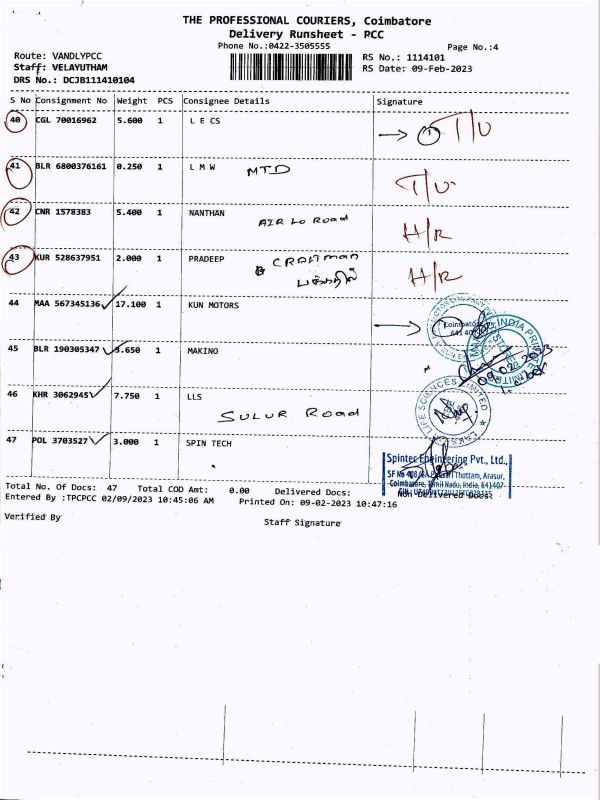 THE PROFESSIONAL COURIERS, Coimbatore
Delivery Runsheet - PCC
Phone No.:0422-3505555
Page No.:4
Route: VANDLYPCC
RS No.: 1114101
Staff: VELAYUTHAM
RS Date: 09-Feb-2023
DRS No.: DCJB111410104
S No Consignment No Weight PCS Consignee Details Signature
40 CGL 70016962 5.600 1 L E CS T/U
41 BLR 6800376161 0.250 1 L M W MTD T/U
42 CNR 1578383 5.400 1 NANTHAN H/R
Road
43 KUR 528637951 2.000 1 PRADEEP H/R
44 MAA 567345136 17.100 1 KUN MOTORS
Coimbatore
INDIA PRIVATE LIMITED
STORES
45 BLR 190305347 5.650 1 MAKINO
09.02.2023
46 KHR 3062945 7.750 1 LLS
SULUR Road
LIFE SCIENCES LIMITED
47 POL 3703527 3.000 1 SPIN TECH
Spintec Engineering Pvt., Ltd.,
SF No 408 Thottam, Arasur,
Coimbatore, Tamil Nadu, India, 641407
Total No. Of Docs: 47 Total COD Amt: 0.00 Delivered Docs: Non Delivered Docs:
Entered By :TPCPCC 02/09/2023 10:45:06 AM Printed On: 09-02-2023 10:47:16
Verified By
Staff Signature